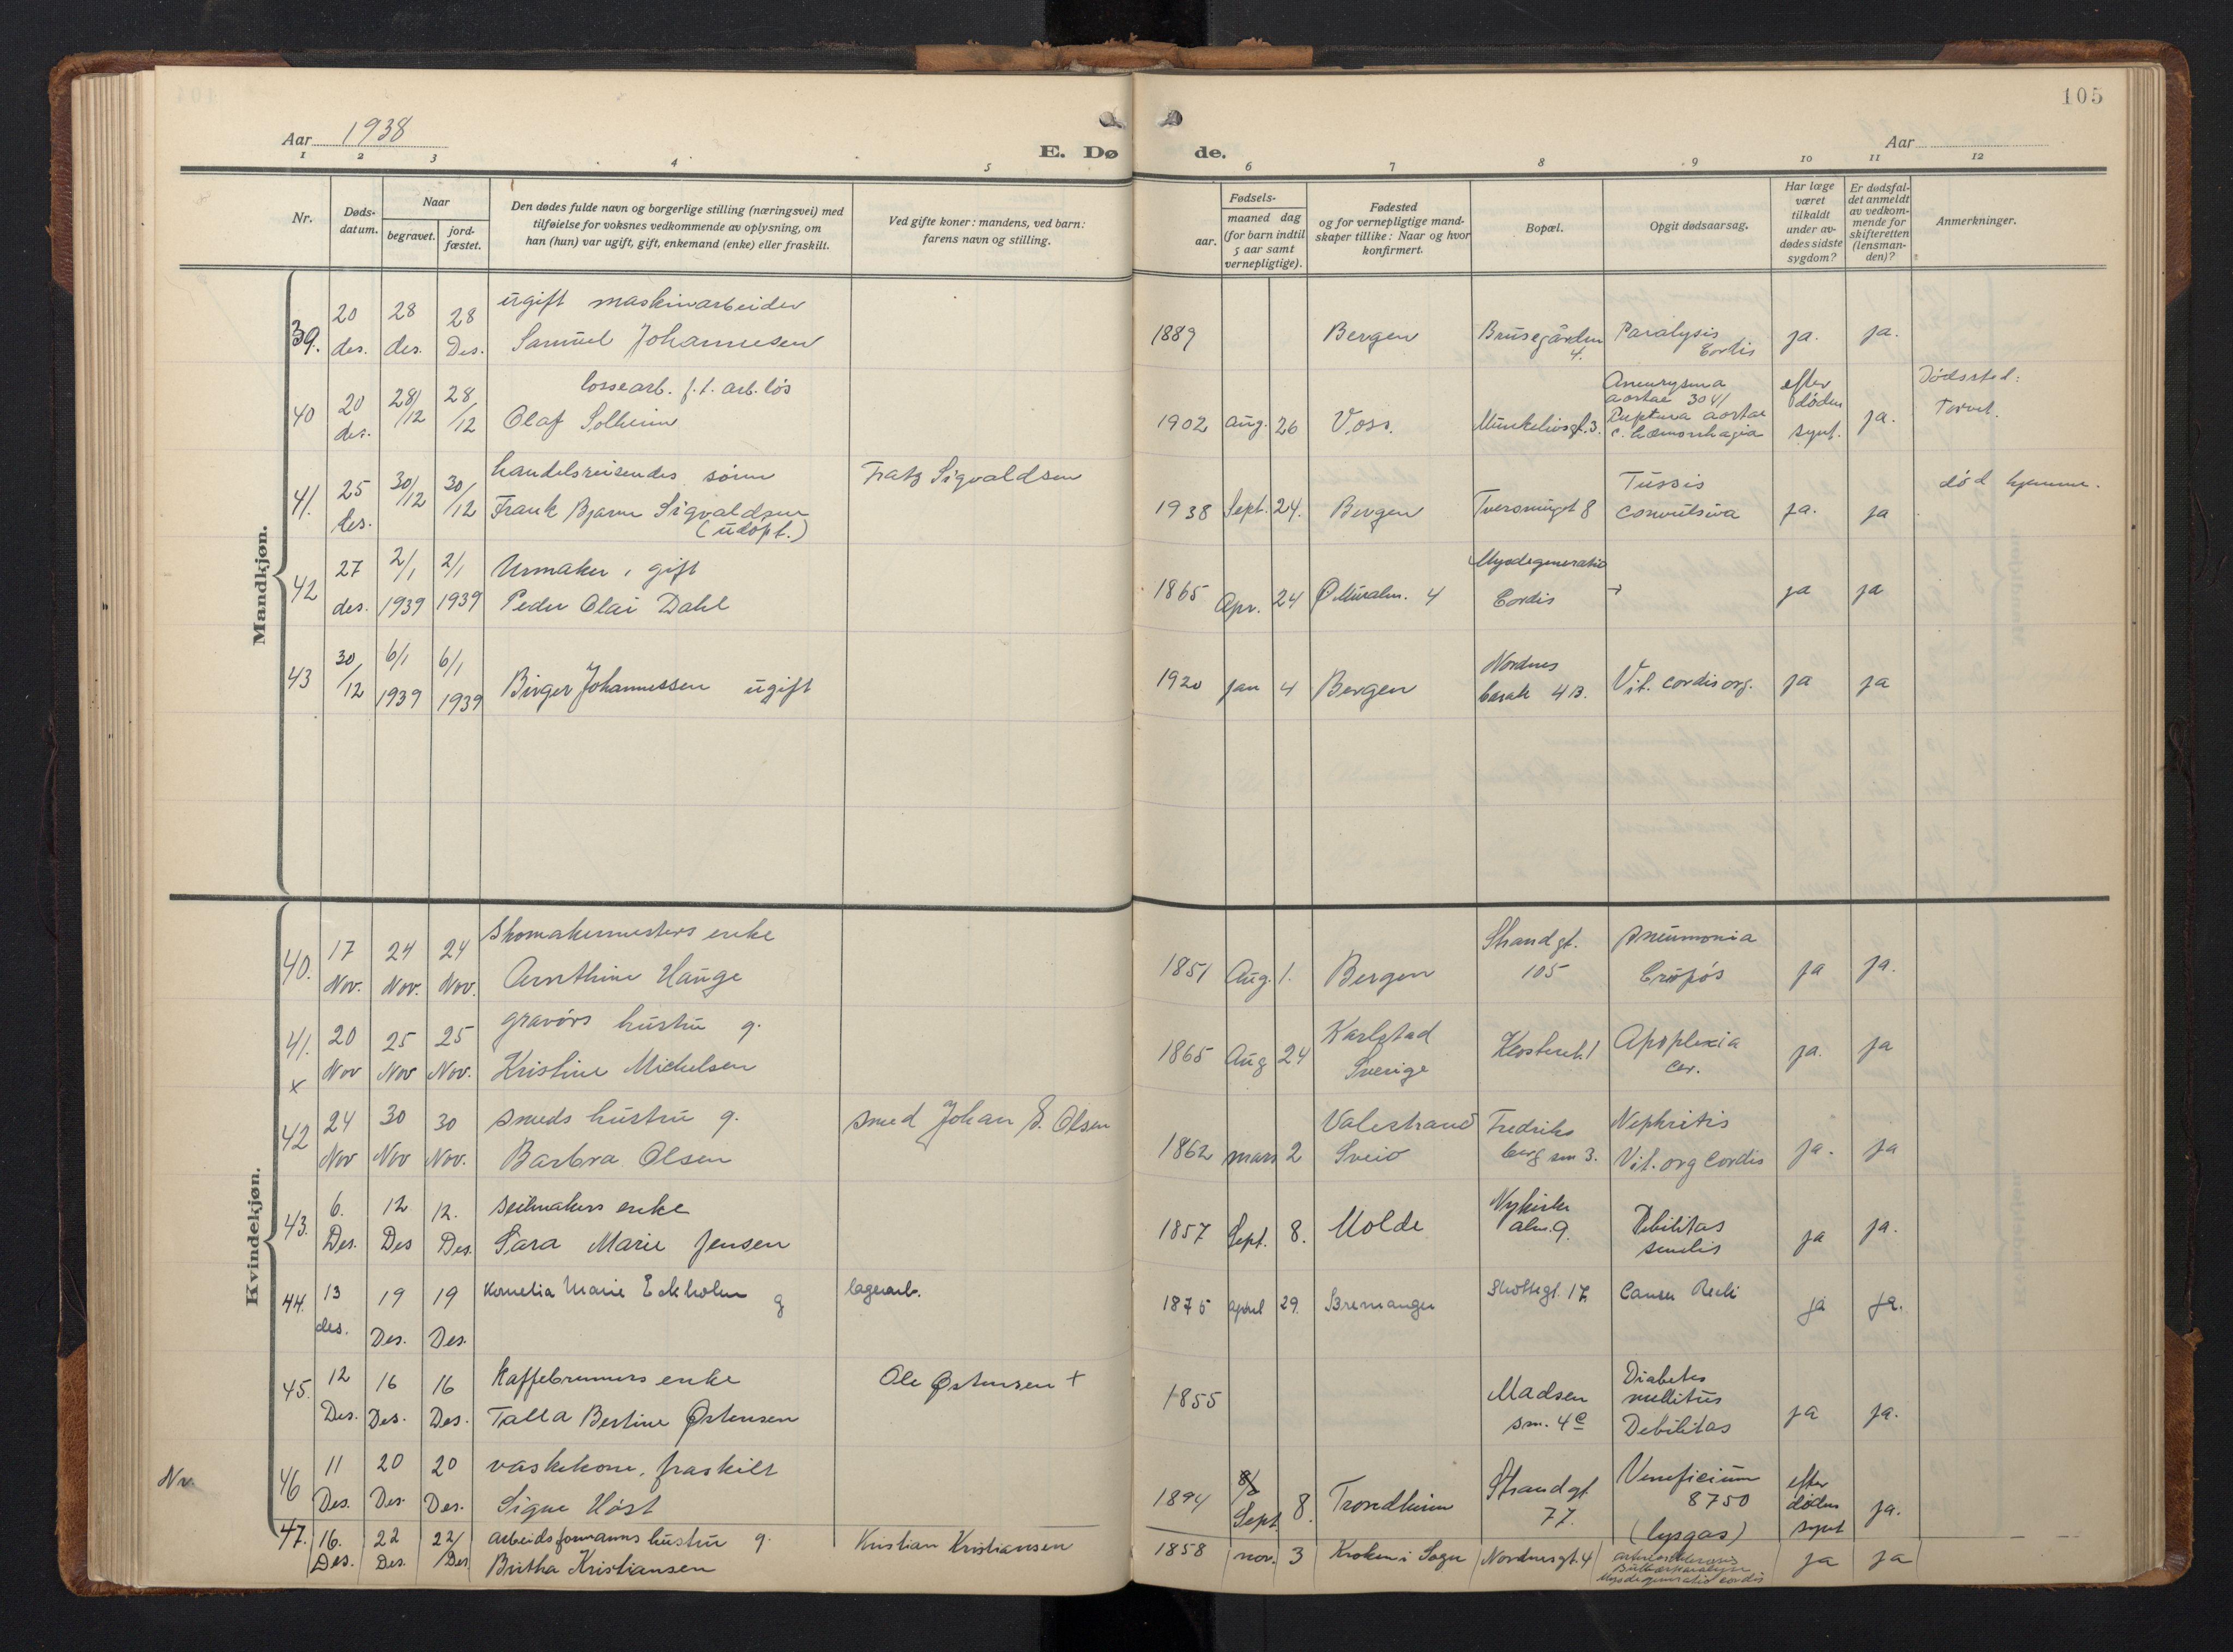 105
Aar 1938
Aar
E. Døde.
1 2 3 4 5 6 7 8 9 10 11 12
Nr.
Døds-
datum.
Naar
begravet.
jord-
fæstet.
Den dødes fulde navn og borgerlige stilling (næringsvei) med
tilføielse for voksnes vedkommende av oplysning, om
han (hun) var ugift, gift, enkemand (enke) eller fraskilt.
Ved gifte koner: mandens, ved barn:
farens navn og stilling.
Fødsels-
aar.
maaned dag
(for barn indtil
5 aar samt
vernepligtige).
Fødested
og for vernepligtige mand-
skaper tillike: Naar og hvor
konfirmert.
Bopæl.
Opgit dødsaarsag.
Har læge
været
tilkaldt
under av-
dødes sidste
sygdom?
Er dødsfal-
det anmeldt
av vedkom-
mende for
skifteretten
(lensman-
den)?
Anmerkninger.
Mandkjøn.
ugift maskinarbeider
39. 20 des. 28 des. 28 Des. Samuel Johannesen 1889 Bergen Brusegården 4. Paralysis Cordis ja. ja.
lossearb. f.t. arb.løs
40 20 des. 28/12 28/12 Olaf Solheim 1902 aug. 26 Voss. Munkelivsgt. 3. Aneurysma aortae 3041 Ruptura aortae c. hæmorrhagia efter døden synt. ja. Dødssted: Torvet.
handelsreisendes sønn
41. 25 des. 30/12 30/12 Frank Bjarne Sigvaldsen (udøpt.) Fratz Sigvaldsen 1938 Sept. 24. Bergen 8 Tussis convulsiva ja. ja død hjemme.
Urmaker, gift
42 27 des. 2/1 1939 2/1 1939 Peder Olai Dahl 1865 Apr. 24 Ø. Muralm. 4 Myodegeneratio Cordis → ja ja
43 30/12 6/1 1939 6/1 1939 Birger Johannessen ugift 1920 jan 4 Bergen Nordnes barak 4B. Vit. cordis org. ja ja
Kvindekjøn.
Skomakermesters enke
40. 17 Nov. 24 Nov. 24 Nov. Arnthine Hauge 1851 Aug. 1. Bergen Strandgt. 105 Pneumonia Crupøs ja ja.
gravørs hustru g.
41. x 20 Nov 25 Nov 25 Nov. Kristine Michelsen 1865 Aug 24 Karlstad Sverige 1 Apoplexia cer. ja. ja
smeds hustru g.
42 24 Nov 30 Nov 30 Nov. Barbra Olsen smed Johan S. Olsen 1862 mars 2 Valestrand Sveio Fredriksberg sm 3. Nephritis Vit. org cordis ja. ja
seilmakers enke
43. 6. Des. 12 Des 12. Des. Sara Marie Jensen 1857 Sept. 8. Molde Nykirke alm. 9. Debilitas senilis ja ja.
44. 13 des. 19 Des. 19 Des. Kornelia Marie Eckholm g lagerarb. 1875 april 29. Bremanger Skottegt. 17 Cancer Recti ja ja.
Kaffebrenners enke
45. 12 Des. 16 Des. 16 Des. Talla Bertine Østensen Ole Østensen + 1855 Madsen sm. 4c Diabetes mellitus Debilitas ja ja.
vaskekone, fraskilt
Nv. 46 11 Des. 20 Des. 20 Des. Signe Høst 1894 Sept 8. Trondheim Strandgt 77. Veneficium 8750 (lysgas) efter døden synt ja.
arbeidsformanns hustru g.
47. 16. Des. 22 Des. 22 Des Britha Kristiansen Kristian Kristiansen 1858 nov. 3 Kroken i Sogn Nordnesgt. 4 Myodegeneratio cordis ja ja